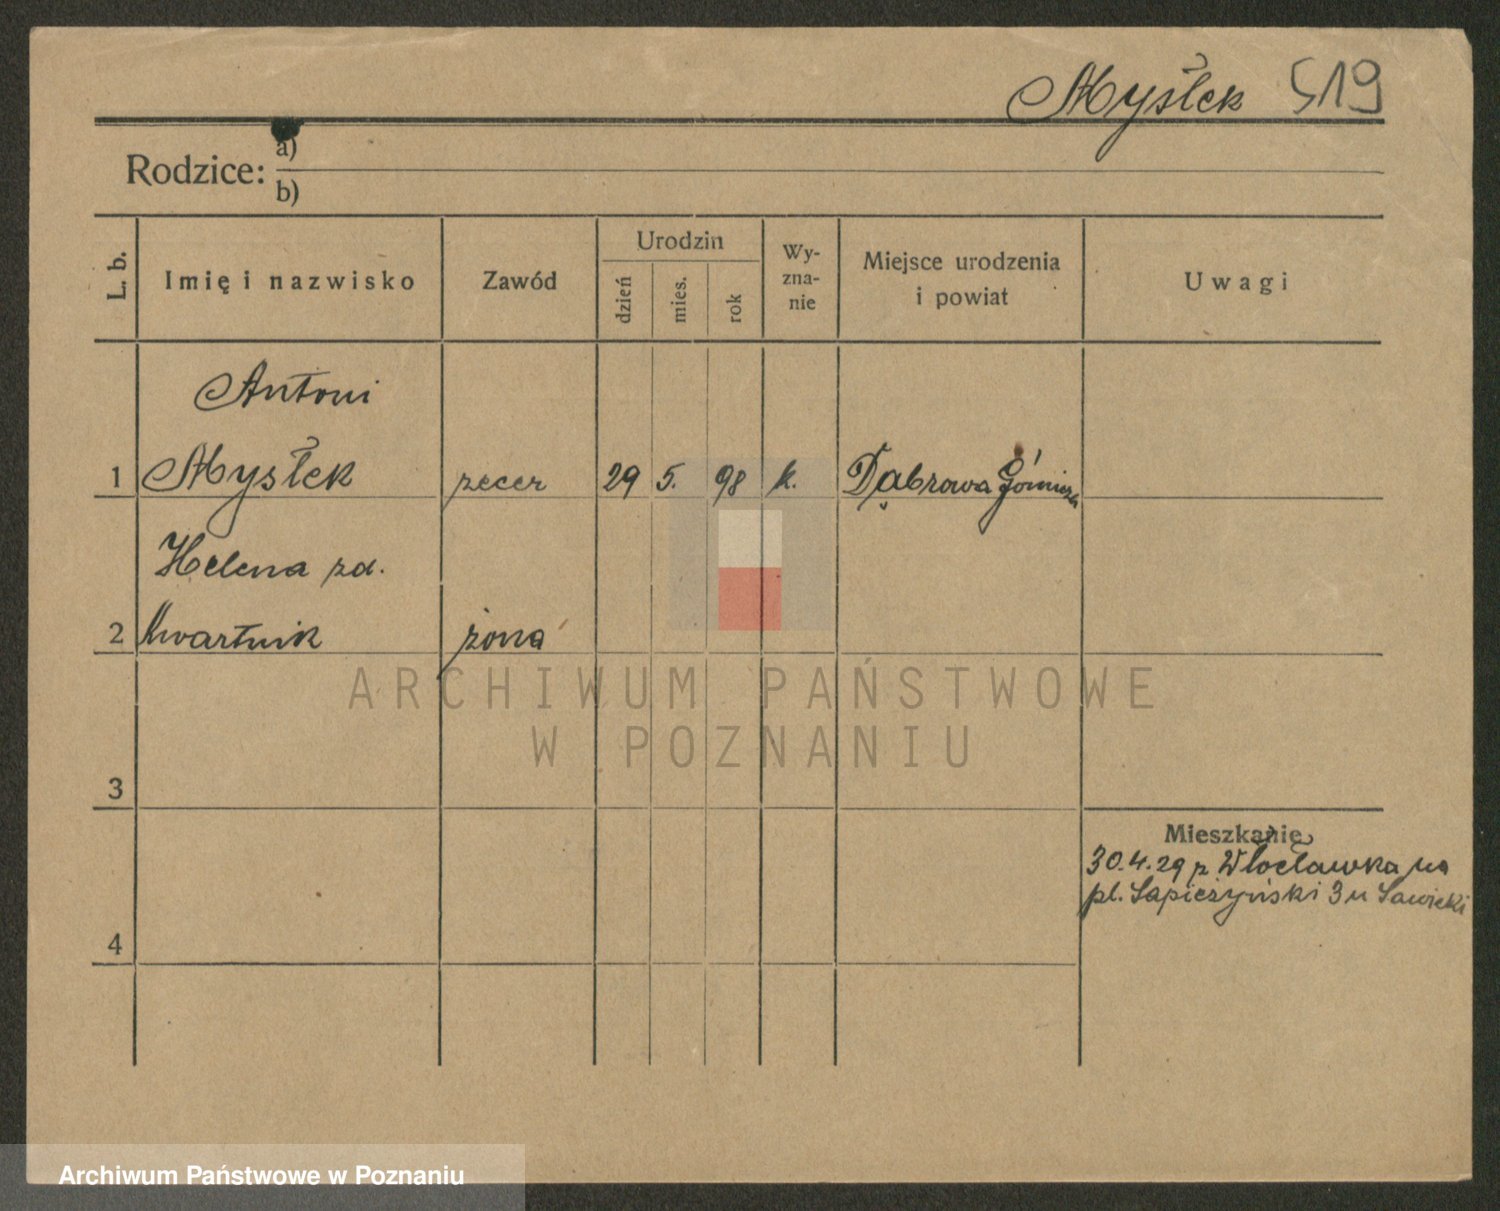 Mysłek 519
Rodzice: a)
b)
L. b.
Imię i nazwisko
Zawód
Urodzin
dzień
mies.
rok
Wy-
zna-
nie
Miejsce urodzenia
i powiat
Uwagi
Antoni
1 Mysłek zecer 29 5. 98 k. Dąbrowa Górnicza
Helena zd.
2 Kwartnik żona
ARCHIWUM PAŃSTWOWE
W POZNANIU
3
Mieszkanie
30.4.29 z Włocławka na
pl. Sapieżyński 3 u Sawicki
4
Archiwum Państwowe w Poznaniu